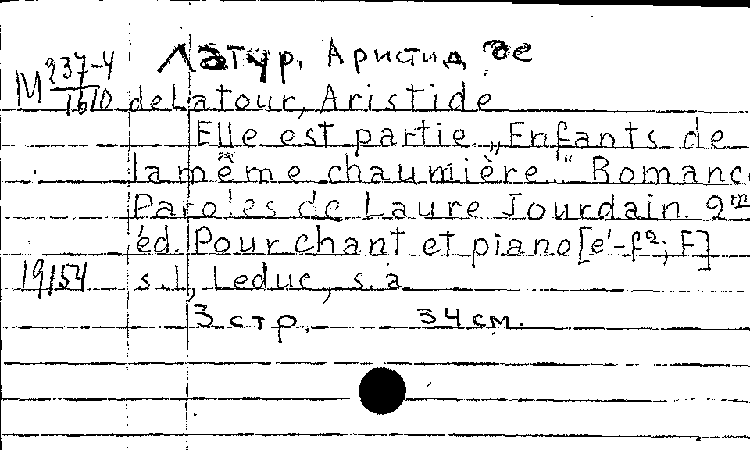 Латур, Аристид де
М 237-4/1610
deLatour, Aristide
Elle est partie „Enfants de
la même chaumière." Romance
Paroles de Laure Jourdain. 2me
éd. Pour chant et piano [e'-f²; F]
19154 s.l, Leduc, s.a.
3 стр. 34 см.